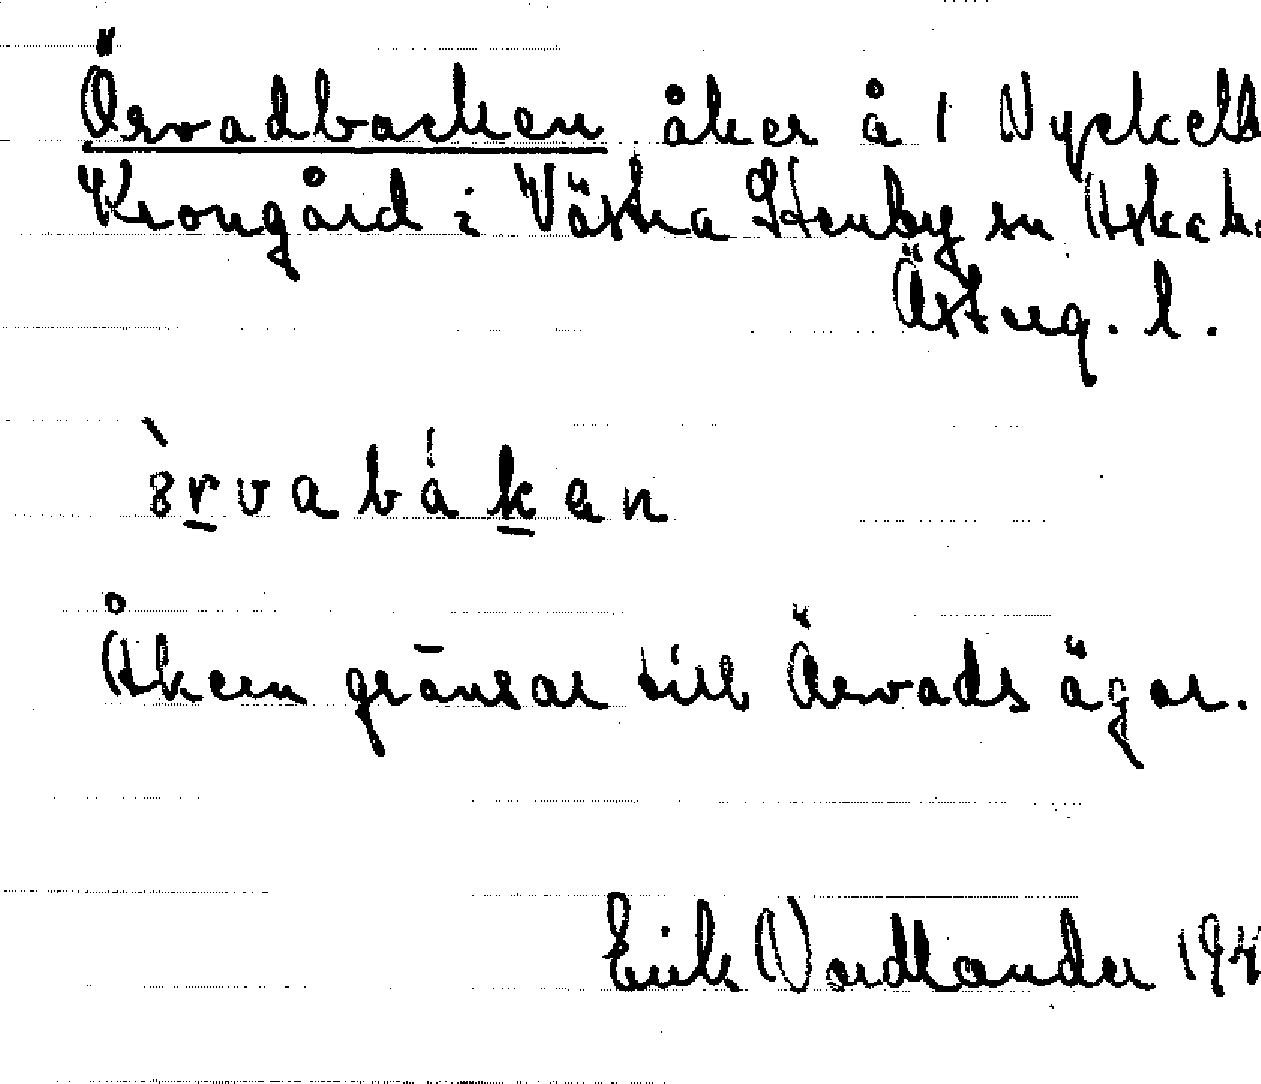 Örvadbacken åker å 1 Nyckelb
Krongård i Västra Stenby sn Aska h.
Österg. l.
örvabákan
Åkern gränsar till Örvads ägor.
Erik Nordlander 194